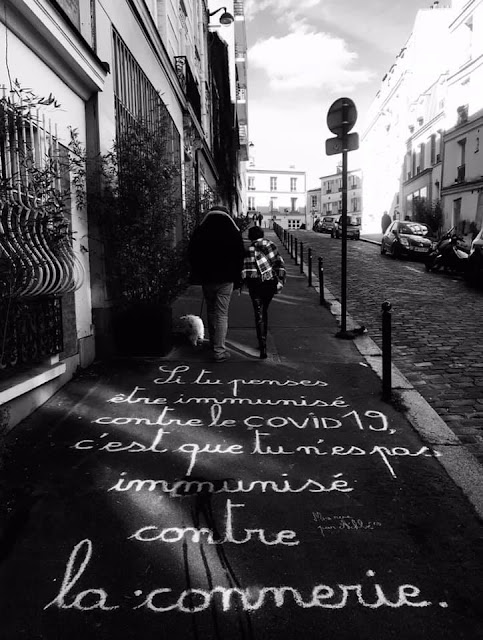 Si tu penses
être immunisé
contre le COVID 19,
c'est que tu n'es pas
immunisé
contre
la connerie.